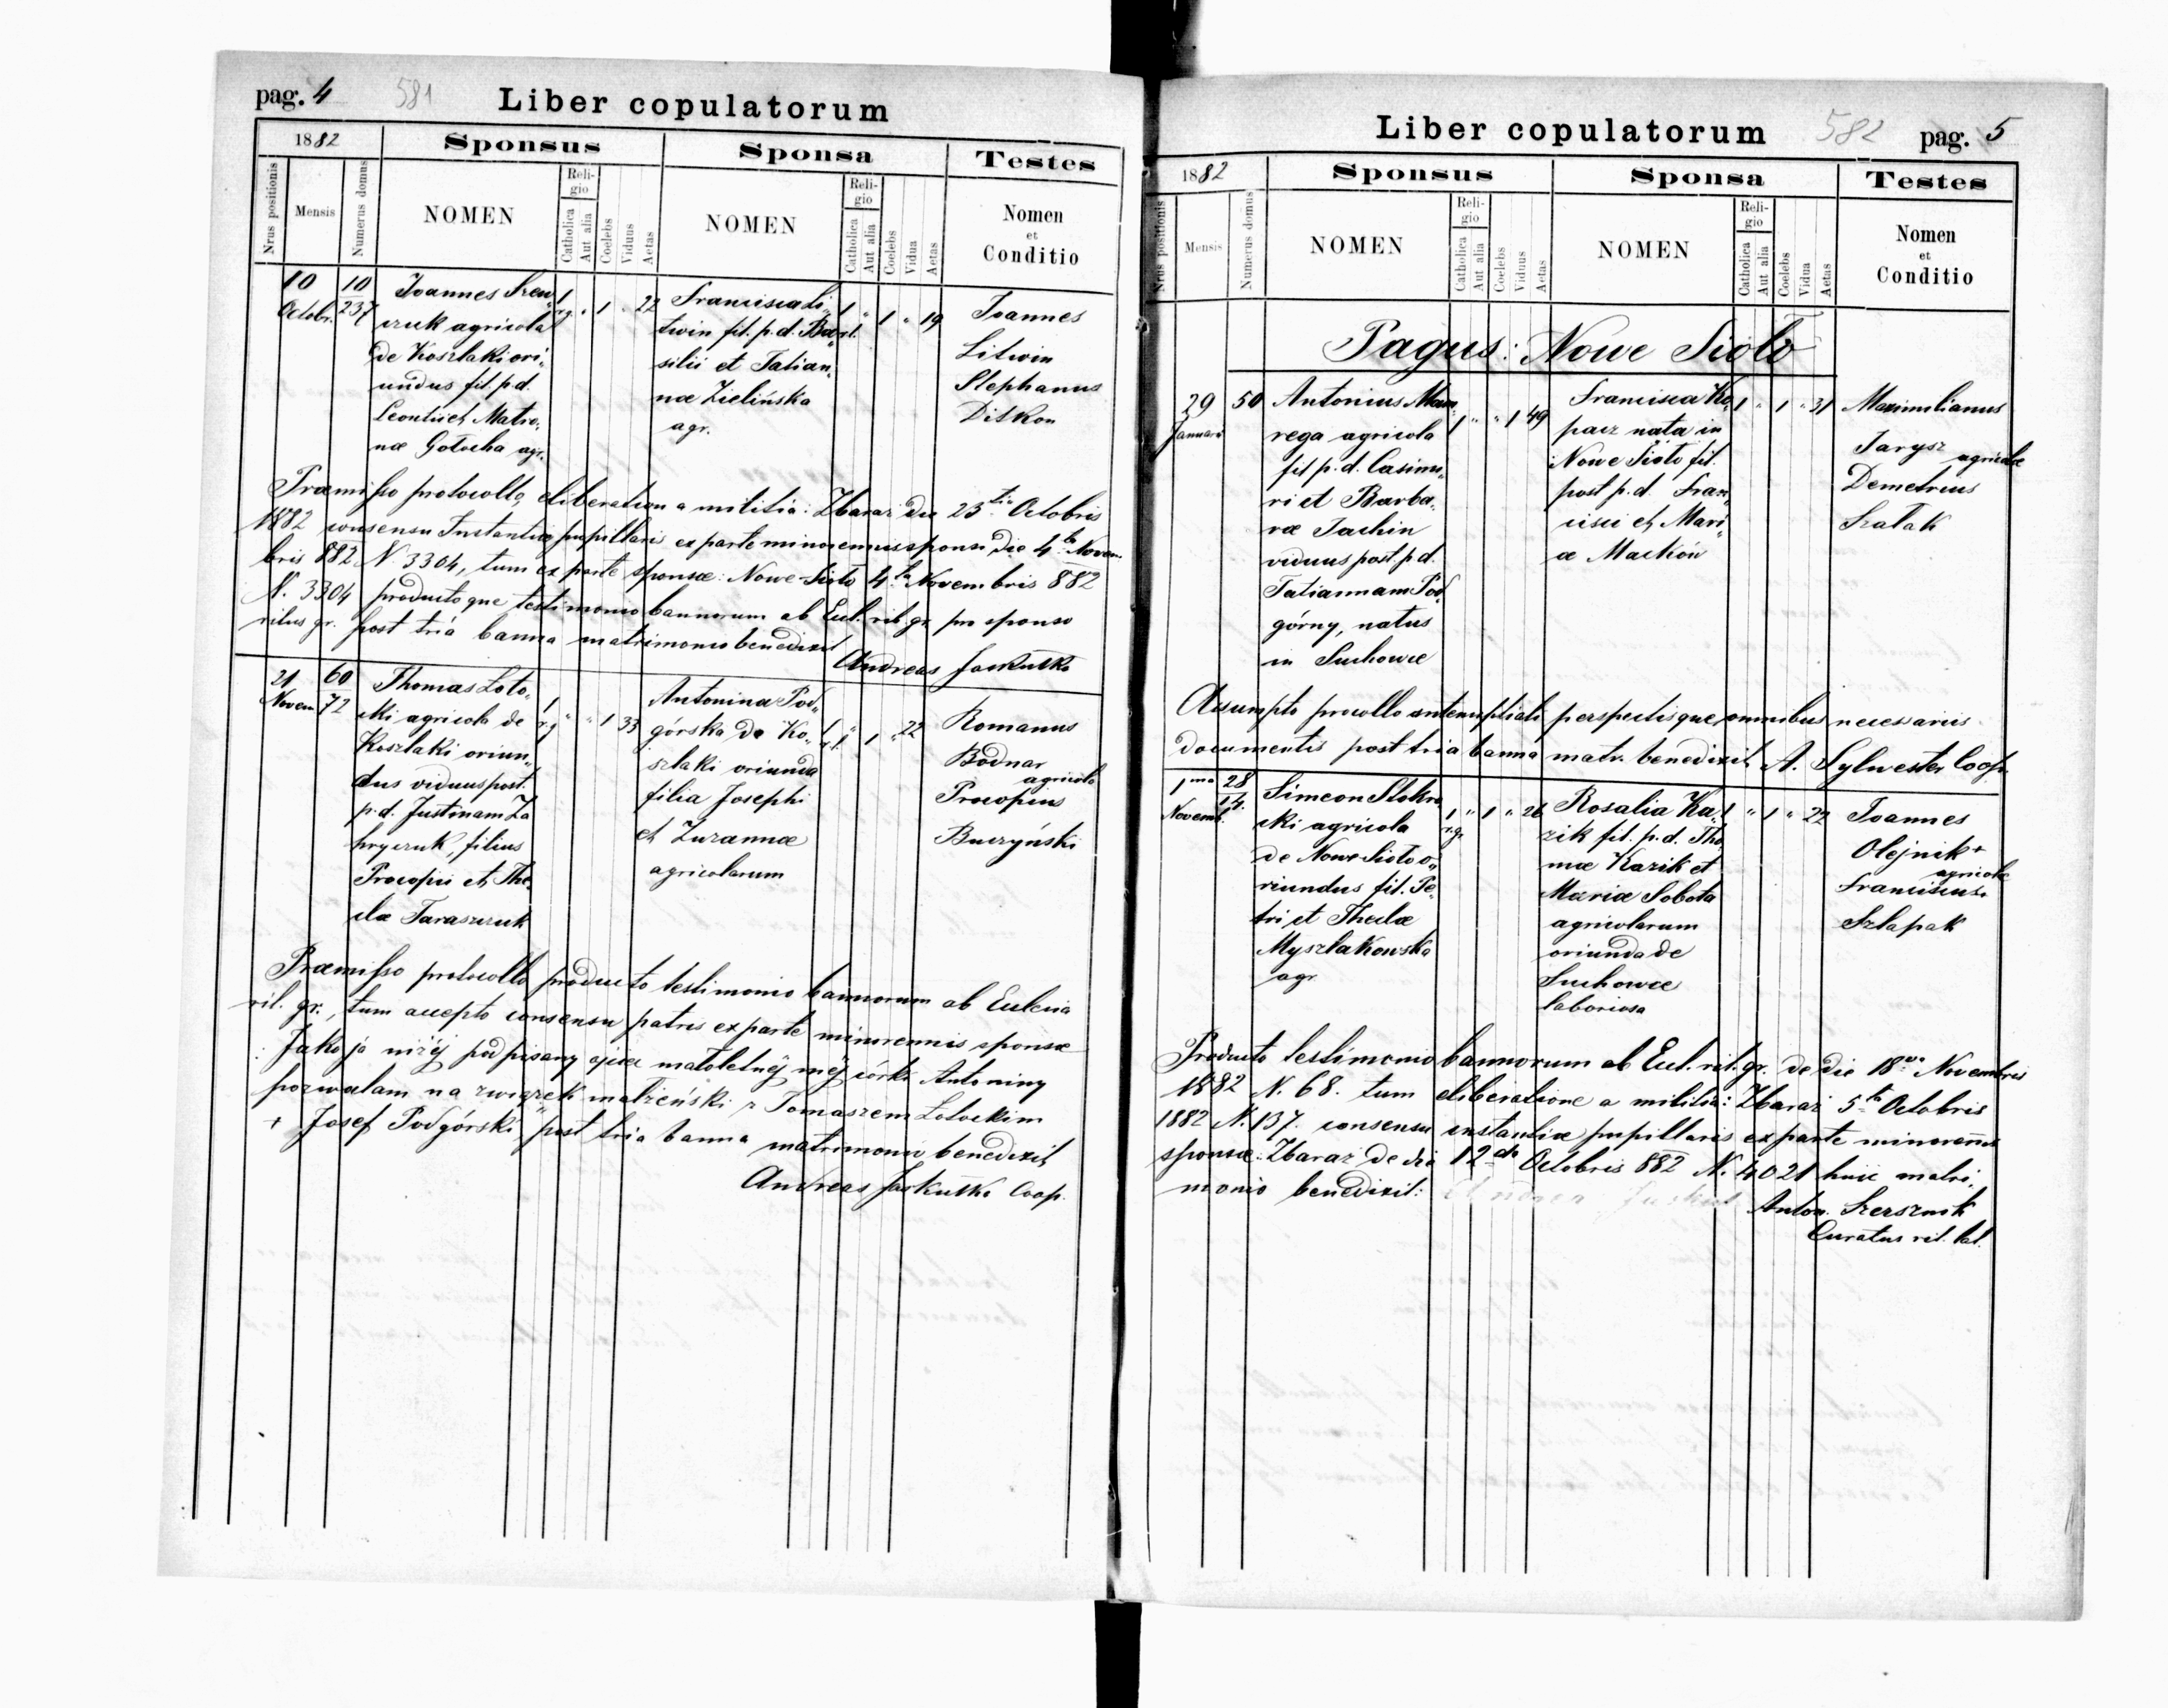 pag. 4 581 Liber copulatorum
1882 Sponsus Sponsa Testes
Nrus positionis Mensis Numerus domus NOMEN Religio Catholica Aut alia Coelebs Viduus Aetas NOMEN Religio Catholica Aut alia Coelebs Vidua Aetas Nomen et Conditio
10 Octobr.
10
237
Joannes Szew„
czuk agricola
de Koszlaki ori„
undus fil. p.d.
Leontii et Matro„
nae Gotocha agr.
1 r.g. " 1 " 22
Francisca Li„
twin fil. p.d. Ba„
silii et Tatian„
nae Zielińska
agr.
1 r.l. " 1 " 19
Joannes
Litwin
Stephanus
Ditkon
Praemisso protocollo, eliberation a militia: Zbaraż die 23tia Octobris
1882 consensu Instantiae pupillaris ex parte minorennis sponsi die 4ta Novem
bris 882 N. 3304, tum ex parte sponsae: Nowe-Sioło 4ta Novembris 882
N. 3304 productoque testimonio bannorum ab Eccl. rit. gr. pro sponso
ritus gr. post tria banna matrimonio benedixit
Andreas Jaskułka
21 Novem
60
72
Thomas Łoto„
cki agricola de
Koszlaki oriun„
dus viduus post
p.d. Justinam Za
hryczuk, filius
Procopii et The„
clae Taraszczuk
1 r.g " " 1 33
Antonina Pod„
górska de Ko„
szlaki oriunda
filia Josephi
et Zuzannae
agricolarum
1 r.l. " 1 " 22
Romanus
Bodnar
agricola
Procopius
Buczyński
Praemisso protocollo producto testimonio bannorum ab Ecclesia
rit. gr., tum accepto consensu patris ex parte minorennis sponsae
: Jako ja niżej podpisany ojciec małoletnéj méj córki Antoniny
pozwalam na związek małżeński z Tomaszem Łotockim
+ Josef Podgórski, post tria banna matrimonio benedixit
Andreas Jaskułka Coop.
Liber copulatorum 582 pag. 5
1882 Sponsus Sponsa Testes
Nrus positionis Mensis Numerus domus NOMEN Religio Catholica Aut alia Coelebs Viduus Aetas NOMEN Religio Catholica Aut alia Coelebs Vidua Aetas Nomen et Conditio
Pagus: Nowe Sioło
29 Januarii
50
Antonius Mam„
rega agricola
fil p.d. Casimi„
ri et Barba„
rae Jachin
viduus post p.d.
Tatiannam Pod„
górny, natus
in Suchowce
1 " " 1 49
Francisca Ko„
pacz nata in
Nowe Sioło fil.
post p.d. Fran„
cisci et Mari„
ae Maćków
1 " 1 " 31
Maximilianus
Jarysz
agricolae
Demetrius
Szałak
Assumpto procollo antenuptiali perspectisque omnibus necessariis
documentis post tria banna matr. benedixit A. Sylwester Coop.
1ma Novemb.
28
14.
Simeon Stokro
cki agricola
de Nowe Sioło o„
riundus fil. Pe„
tri et Theclae
Myszlakowska
agr
1 r.gr. " 1 " 26
Rosalia Ka„
zik fil. p.d. Tho
mae Kazik et
Mariae Sobota
agricolarum
oriunda de
Suchowce
laboriosa
1 " 1 " 22
Joannes
Olejnik +
agricolae
Franciscus
Szlapak
Producto testimonio bannorum ab Eccl. rit. gr. de die 18va Novembris
1882 N. 68. tum eliberatione a militia: Zbaraż 5ta Octobris
1882 N. 137. consensu instantiae pupillaris ex parte minorennis
sponsae: Zbaraż de die 12da Octobris 882 N. 4021 huic matri„
monio benedixit:
Anton. Szersznik
Curatus rit. lat.